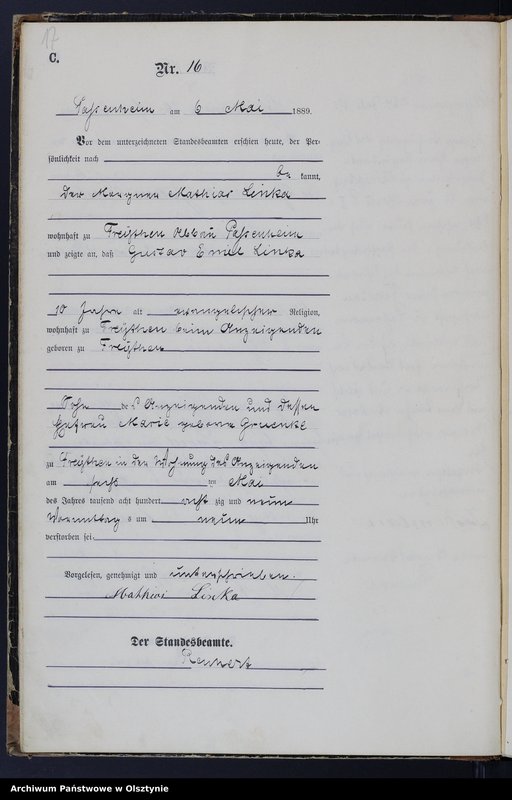 17
C.
Nr. 16
Passenheim am 6 Mai 1889.
Vor dem unterzeichneten Standesbeamten erschien heute, der Per-
sönlichkeit nach
be kannt,
der Mathias Linka
wohnhaft zu Freythen Abbau Passenheim
und zeigte an, daß Gustav Emil Linka
10 Jahre alt evangelischer Religion,
wohnhaft zu Freythen beim Anzeigenden
geboren zu Freythen
Sohn des Anzeigenden und dessen
Ehefrau Marie geborne
zu Freythen in der Wohnung des Anzeigenden
am sechs ten Mai
des Jahres tausend acht hundert acht zig und neun
Vormittag s um neun Uhr
verstorben sei.
Vorgelesen, genehmigt und unterschrieben.
Linka
Der Standesbeamte.
Archiwum Państwowe w Olsztynie